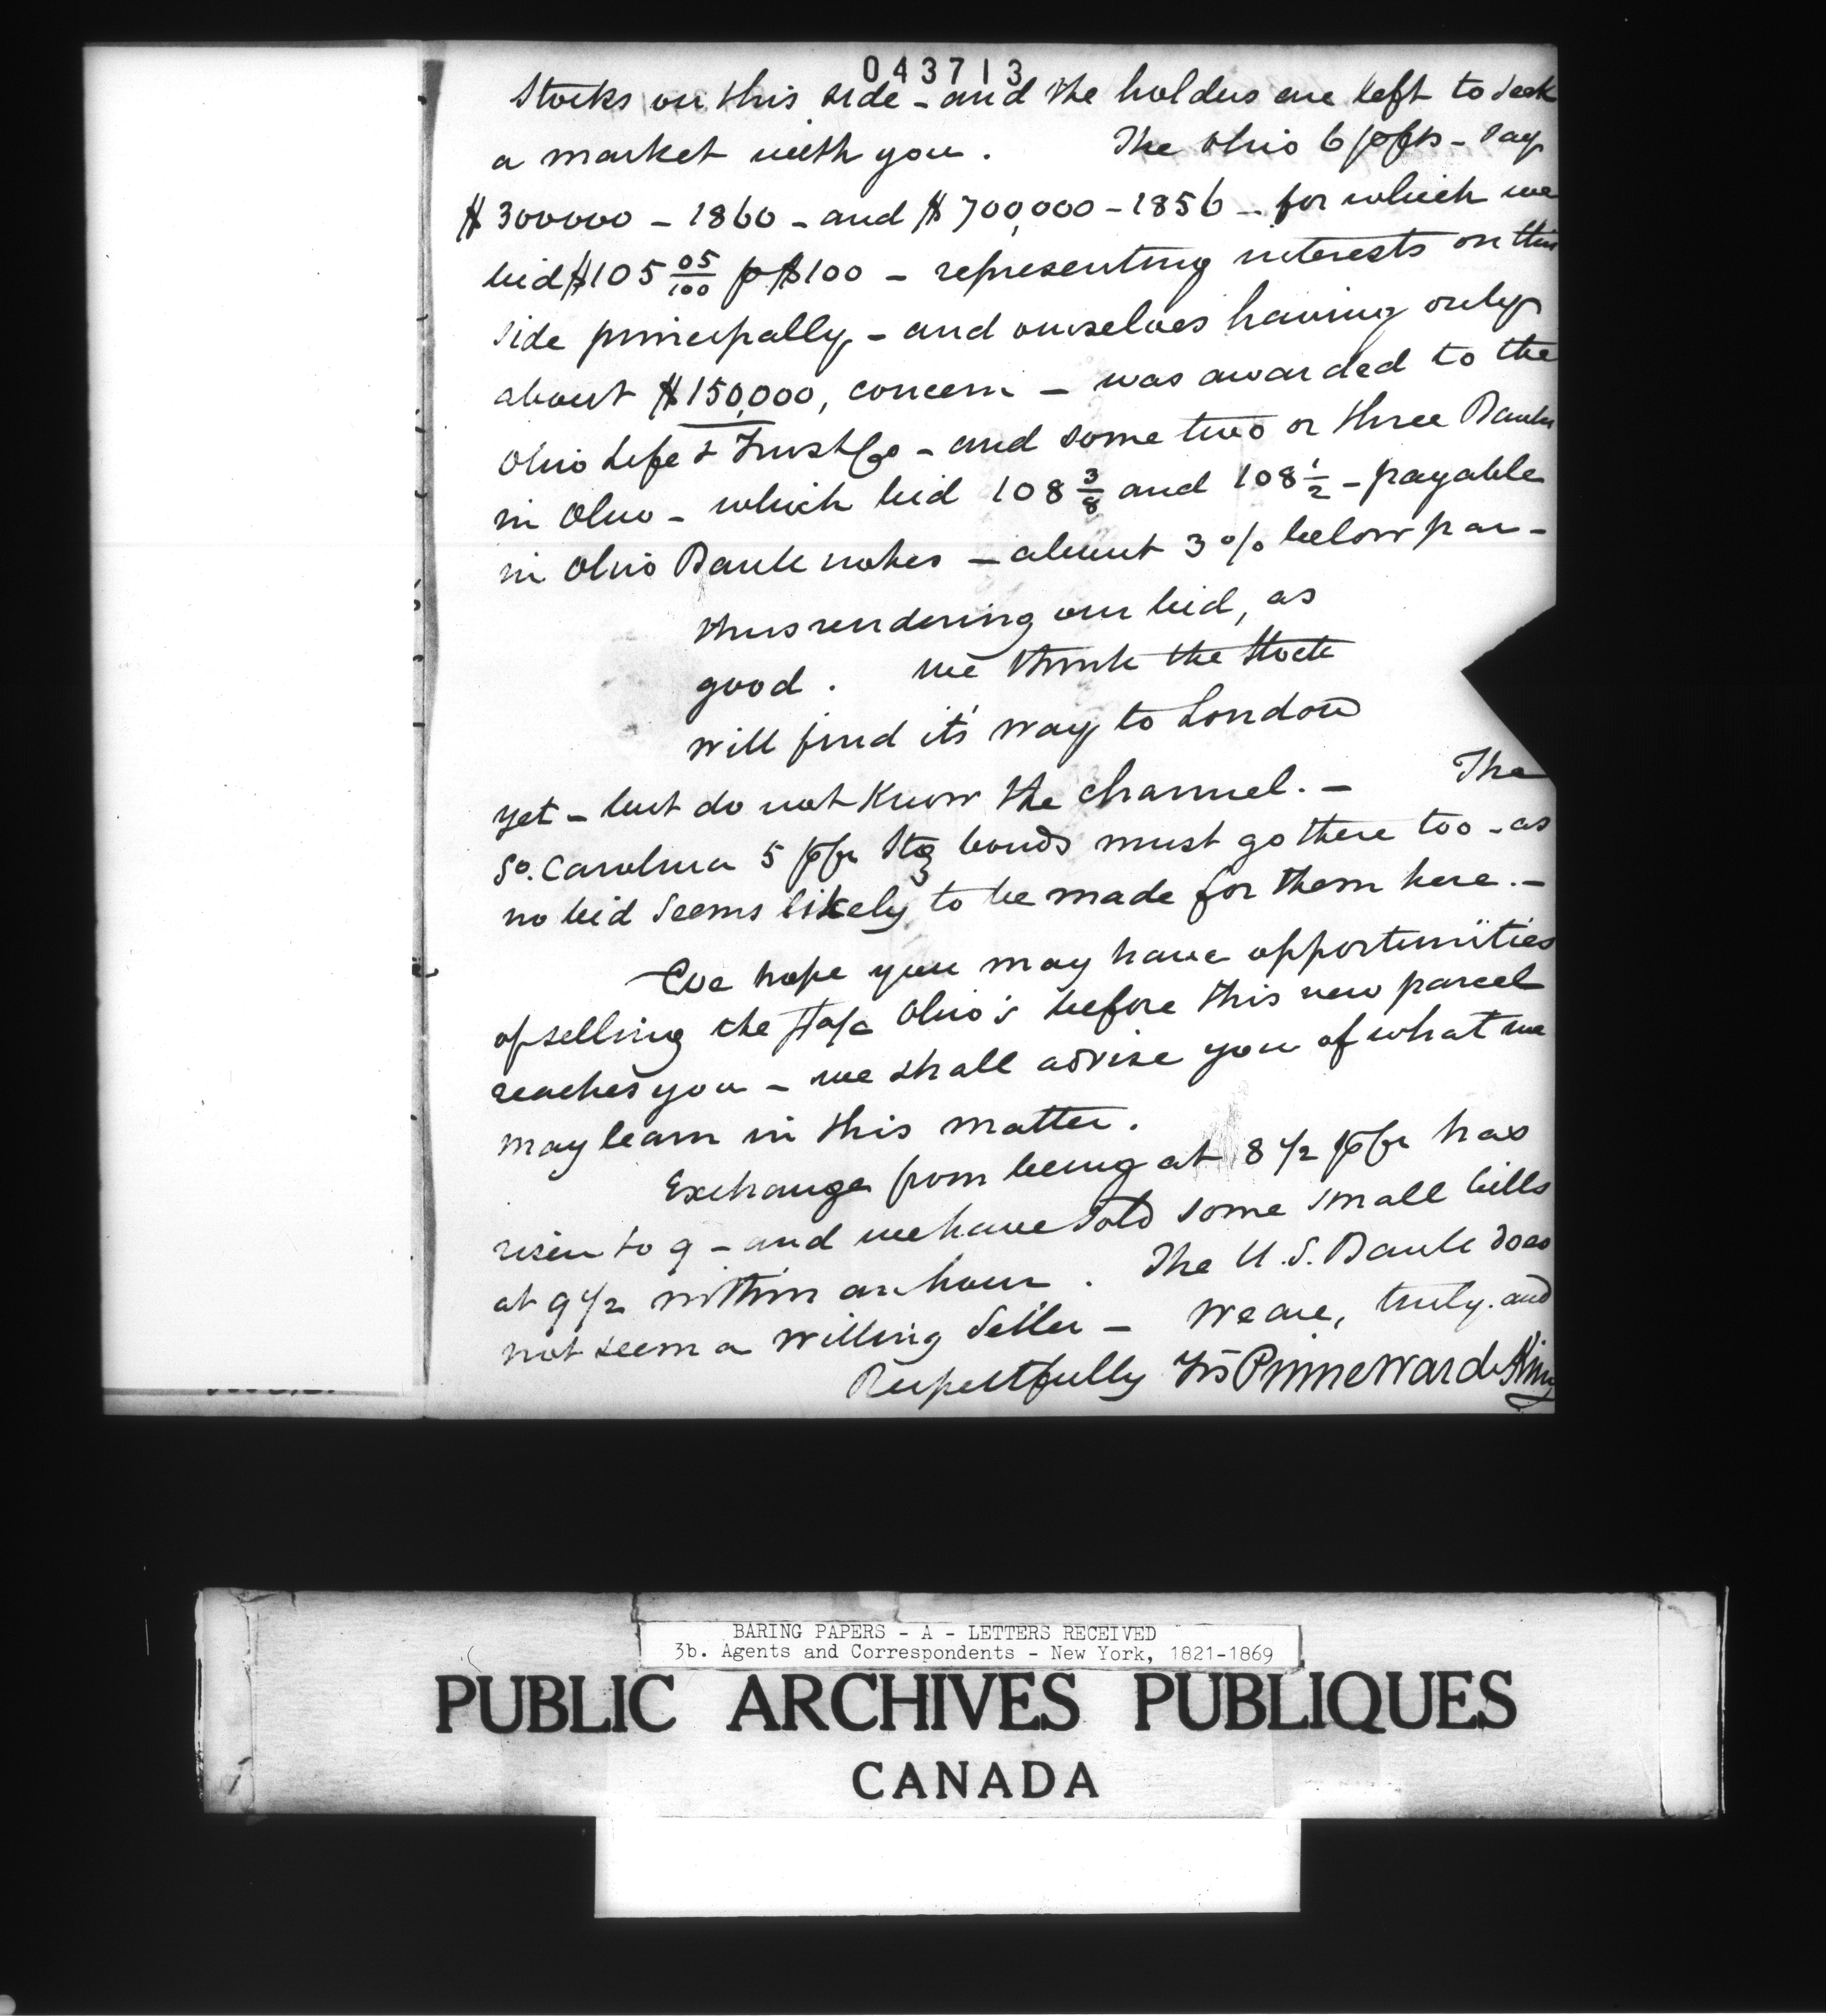 043713
Stocks on this side - and the holders are left to seek
a market with you. The Ohio 6 p Cts - say
$300000 - 1860 - and $700,000 - 1856 - for which we
bid $105 05/100 p $100 - representing interests on this
side principally, - and ourselves having only
about $150,000, concern - was awarded to the
Ohio Life & Trust Co - and some two or three Banks
in Ohio - which bid 108 3/8 and 108 1/2 - payable
in Ohio Bank notes - about 3 % below par -
thus rendering our bid, as
good. We think the Stock
will find it's way to London
yet - but do not know the channel. - The
So. Carolina 5 p Ct Stg bonds must go there too - as
no bid seems likely to be made for them here. -
We hope you may have opportunities
of selling the Ohio's before this new parcel
reaches you - we shall advise you of what we
may learn in this matter.
Exchange from being at 8 1/2 p Ct has
risen to 9 - and we have sold some small bills
at 9 1/2 within an hour. The U.S. Bank does
not seem a willing seller - We are, truly and
Respectfully Yrs Prime Ward & King
BARING PAPERS - A - LETTERS RECEIVED
3b. Agents and Correspondents - New York, 1821-1869
PUBLIC ARCHIVES PUBLIQUES
CANADA